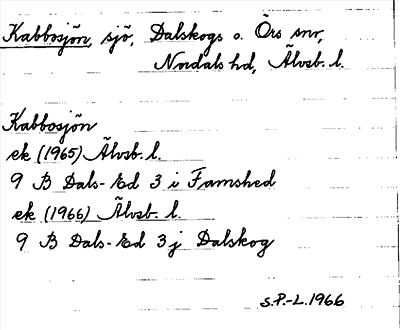 Kabbosjön, sjö, Dalskogs o. Örs snr,
Nordals hd, Älvsb. l.
Kabbosjön
ek (1965) Älvsb. l.
9 B Dals-Ed 3 i Famshed
ek (1966) Älvsb. l.
9 B Dals-Ed 3 j Dalskog
S.P.-L. 1966